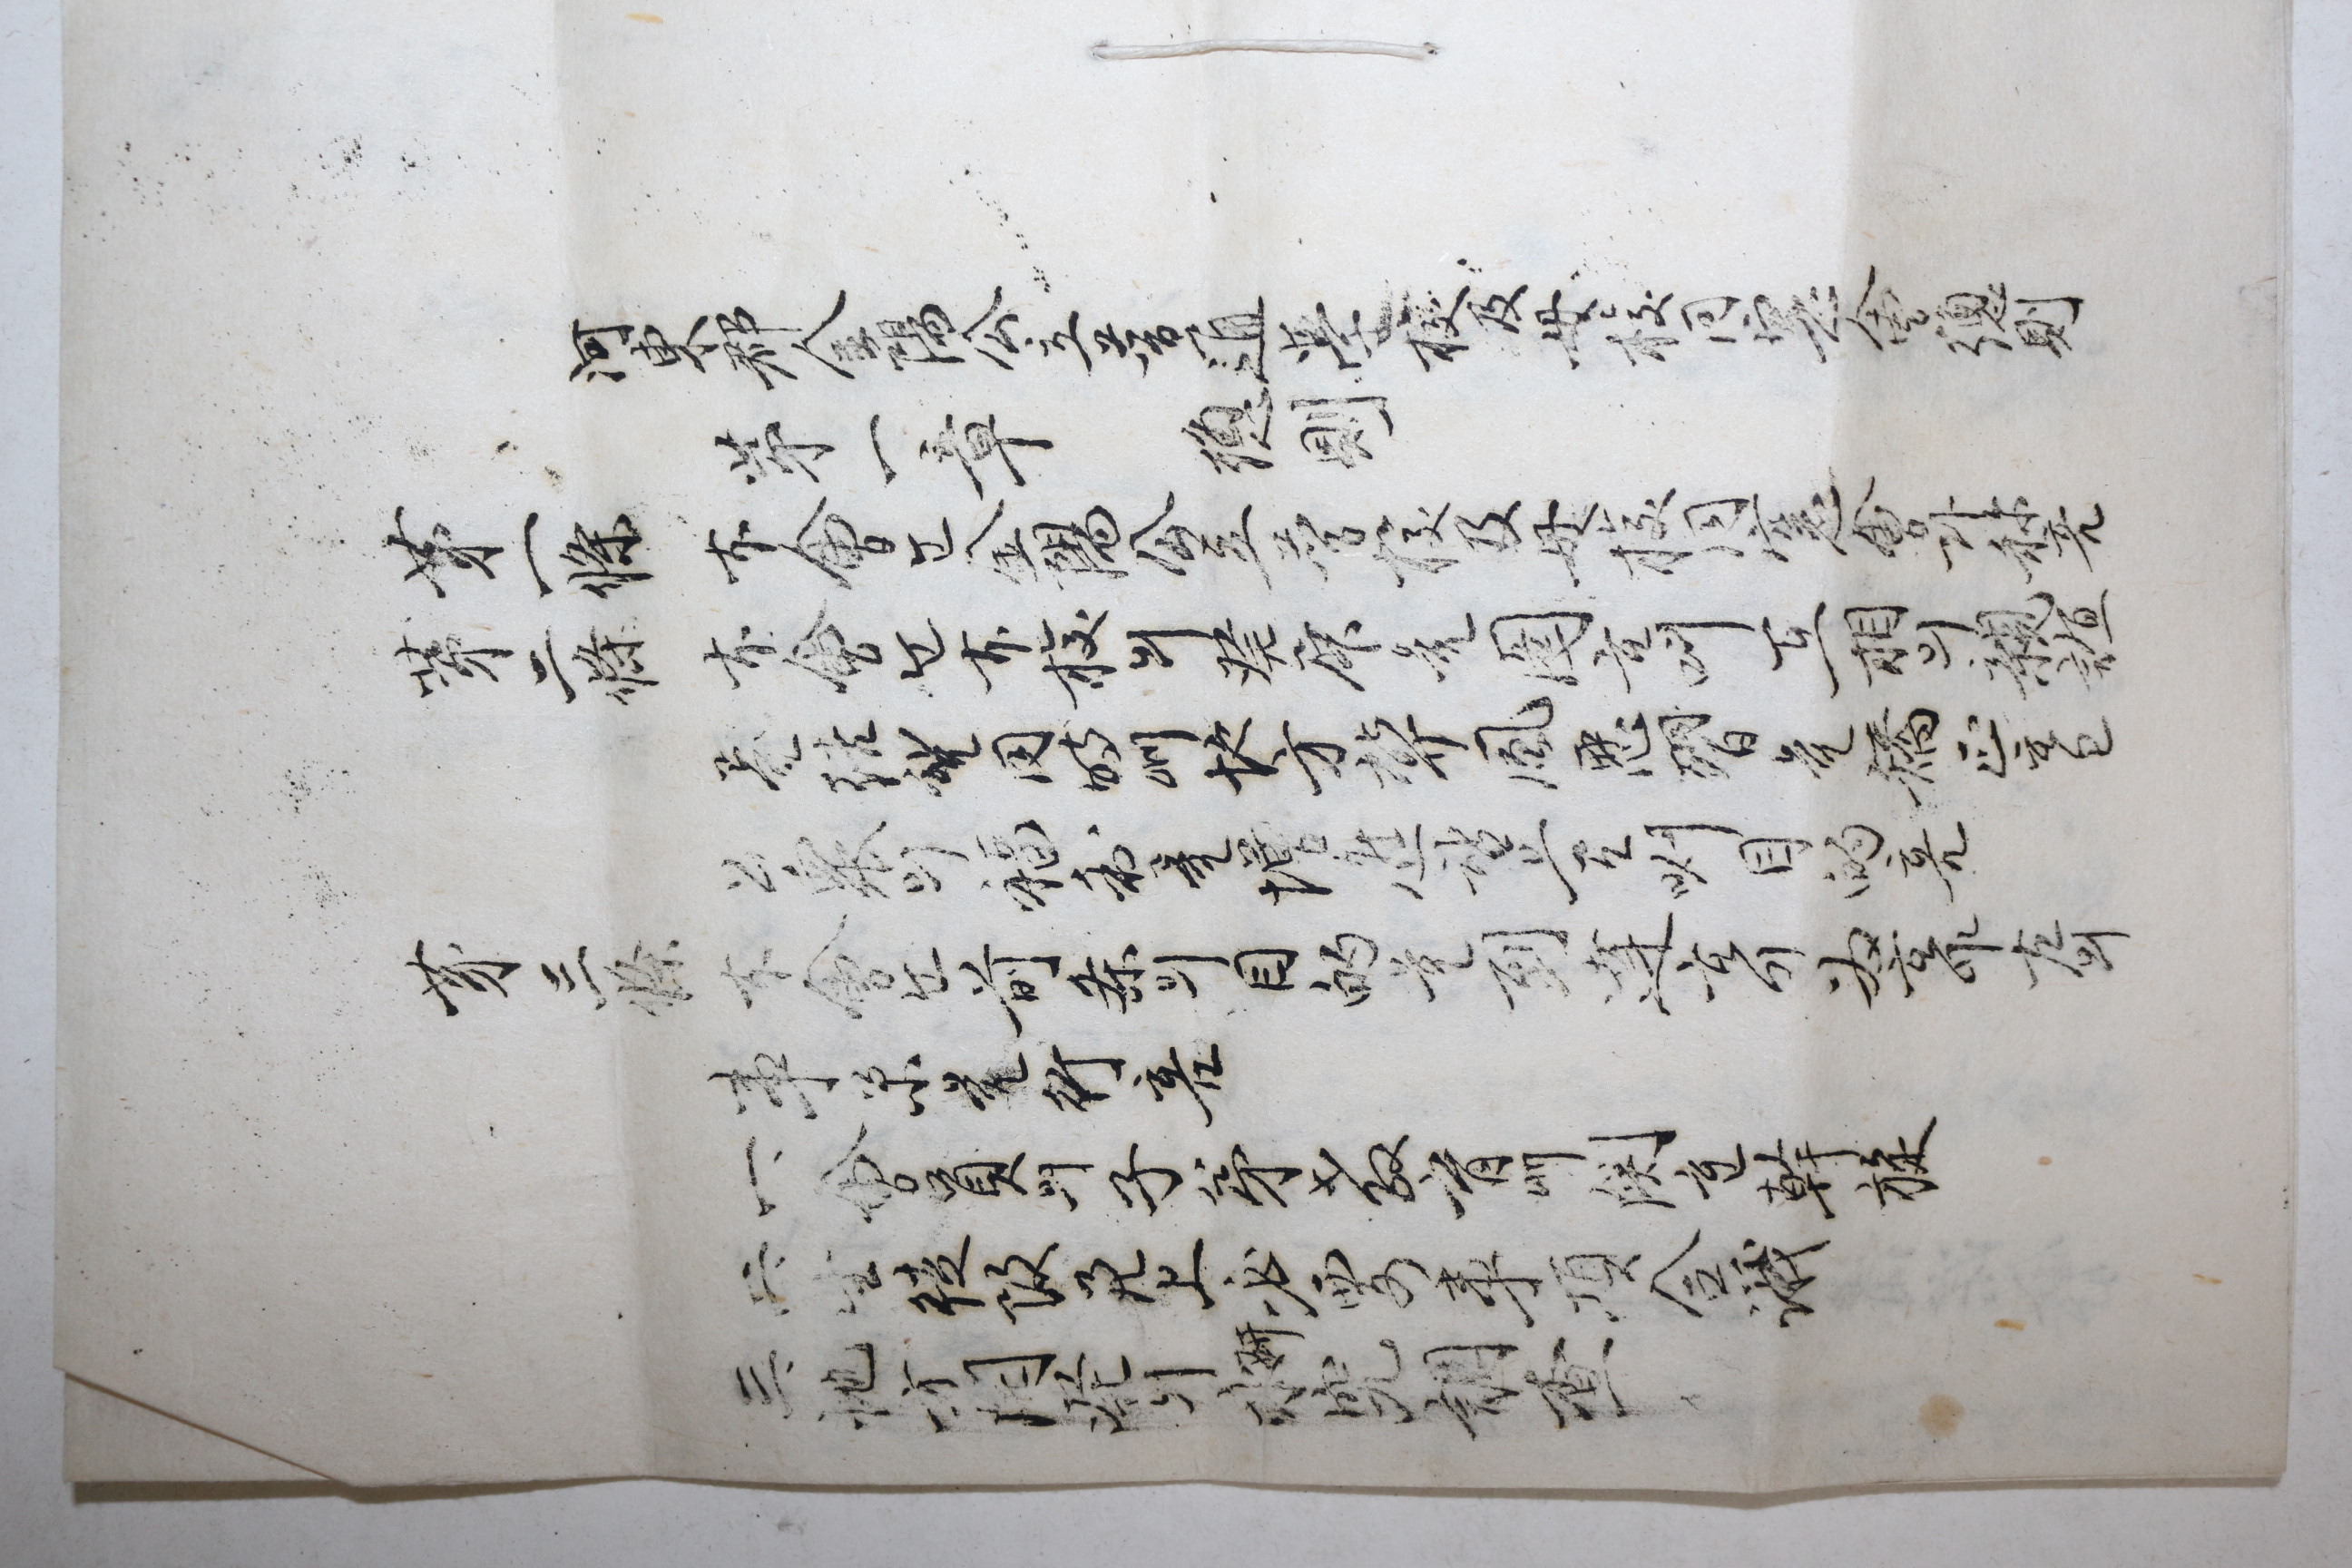 河東郡金陽公立普通學校及母校同窓會總則
第一章 總則
第一條 本會는金陽公立普校及母校同窓會라称홈
第二條 本會는本校의發展을圖하며互相의親誼
를結 同時에地方弊風惡習을矯正하고
公衆의福利를增進 目的홈
第三條 本會는前条의目的을到達하기為하야左의
事業을行홈
一、會員의子弟教育에関한幹旋
二、生徒改良上必要事項合議
三、地方開発의研究調查